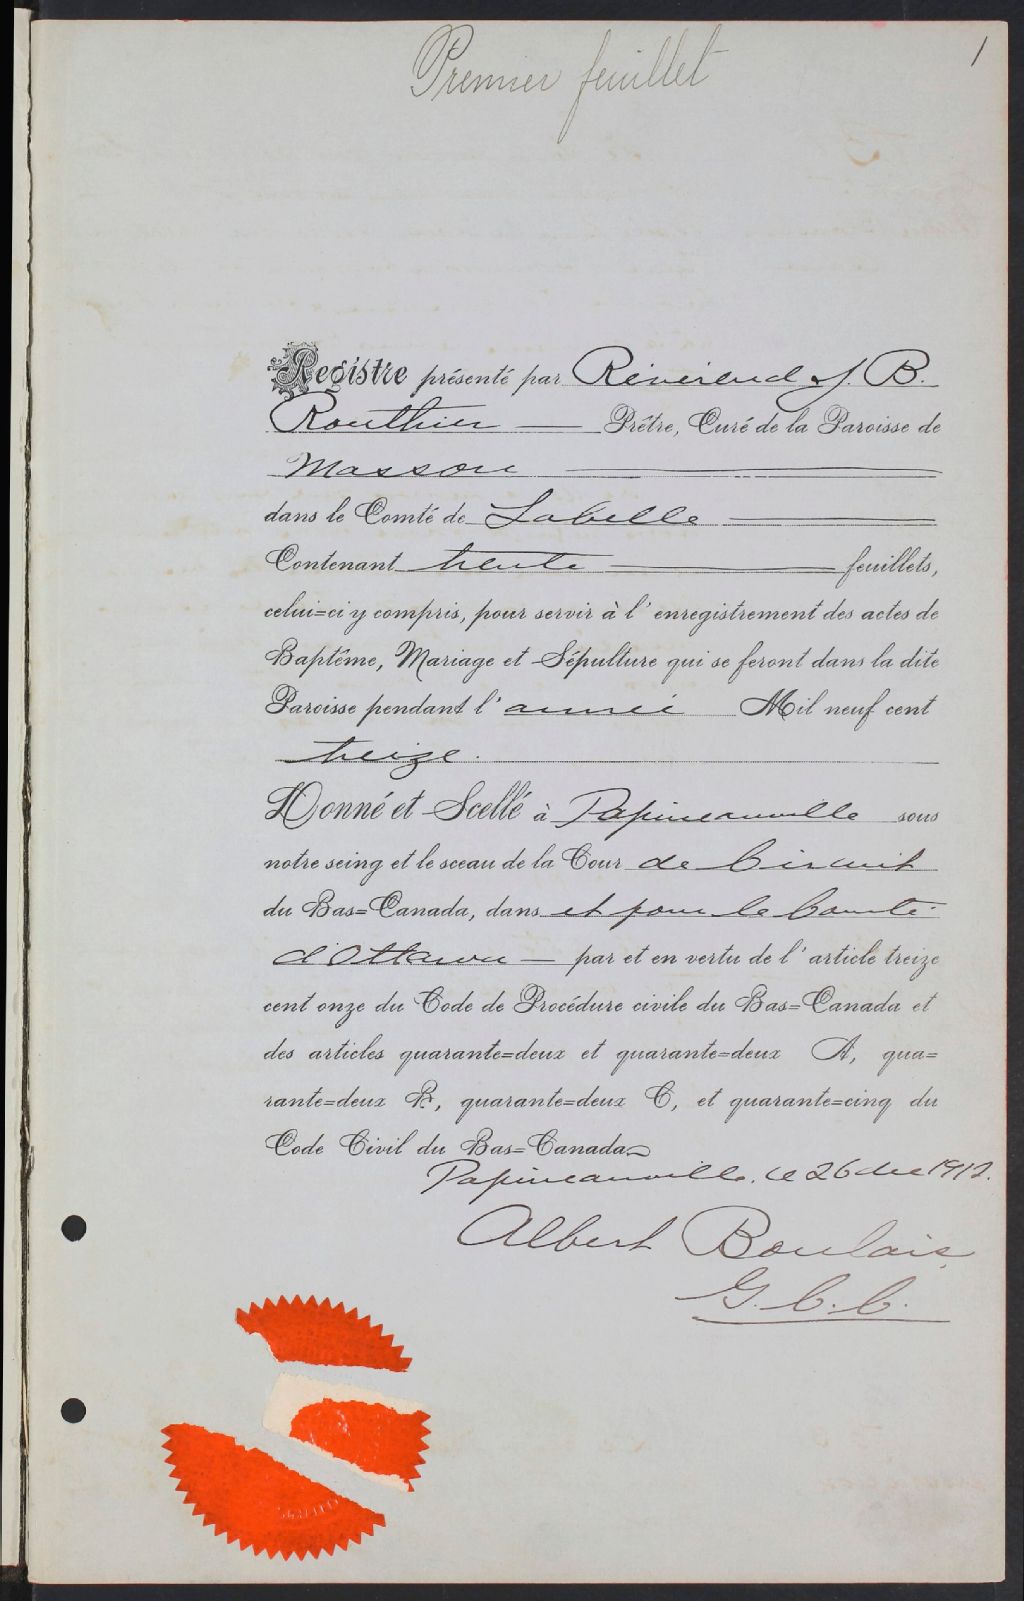 Premier feuillet
1
Registre présenté par Révérend J. B.
Routhier Prêtre, Curé de la Paroisse de
Masson
dans le Comté de Labelle
Contenant trente feuillets,
celui=ci y compris, pour servir à l'enregistrement des actes de
Baptême, Mariage et Sépulture qui se feront dans la dite
Paroisse pendant l'année Mil neuf cent
treize.
Donné et Scellé à Papineauville sous
notre seing et le sceau de la Cour de Circuit
du Bas=Canada, dans et pour le Comté
d'Ottawa par et en vertu de l'article treize
cent onze du Code de Procédure civile du Bas=Canada et
des articles quarante=deux et quarante=deux A, qua=
rante=deux B, quarante=deux C, et quarante=cinq du
Code Civil du Bas=Canada
Papineauville, ce 26 dec 1912.
Albert Boulais,
G. C. C.